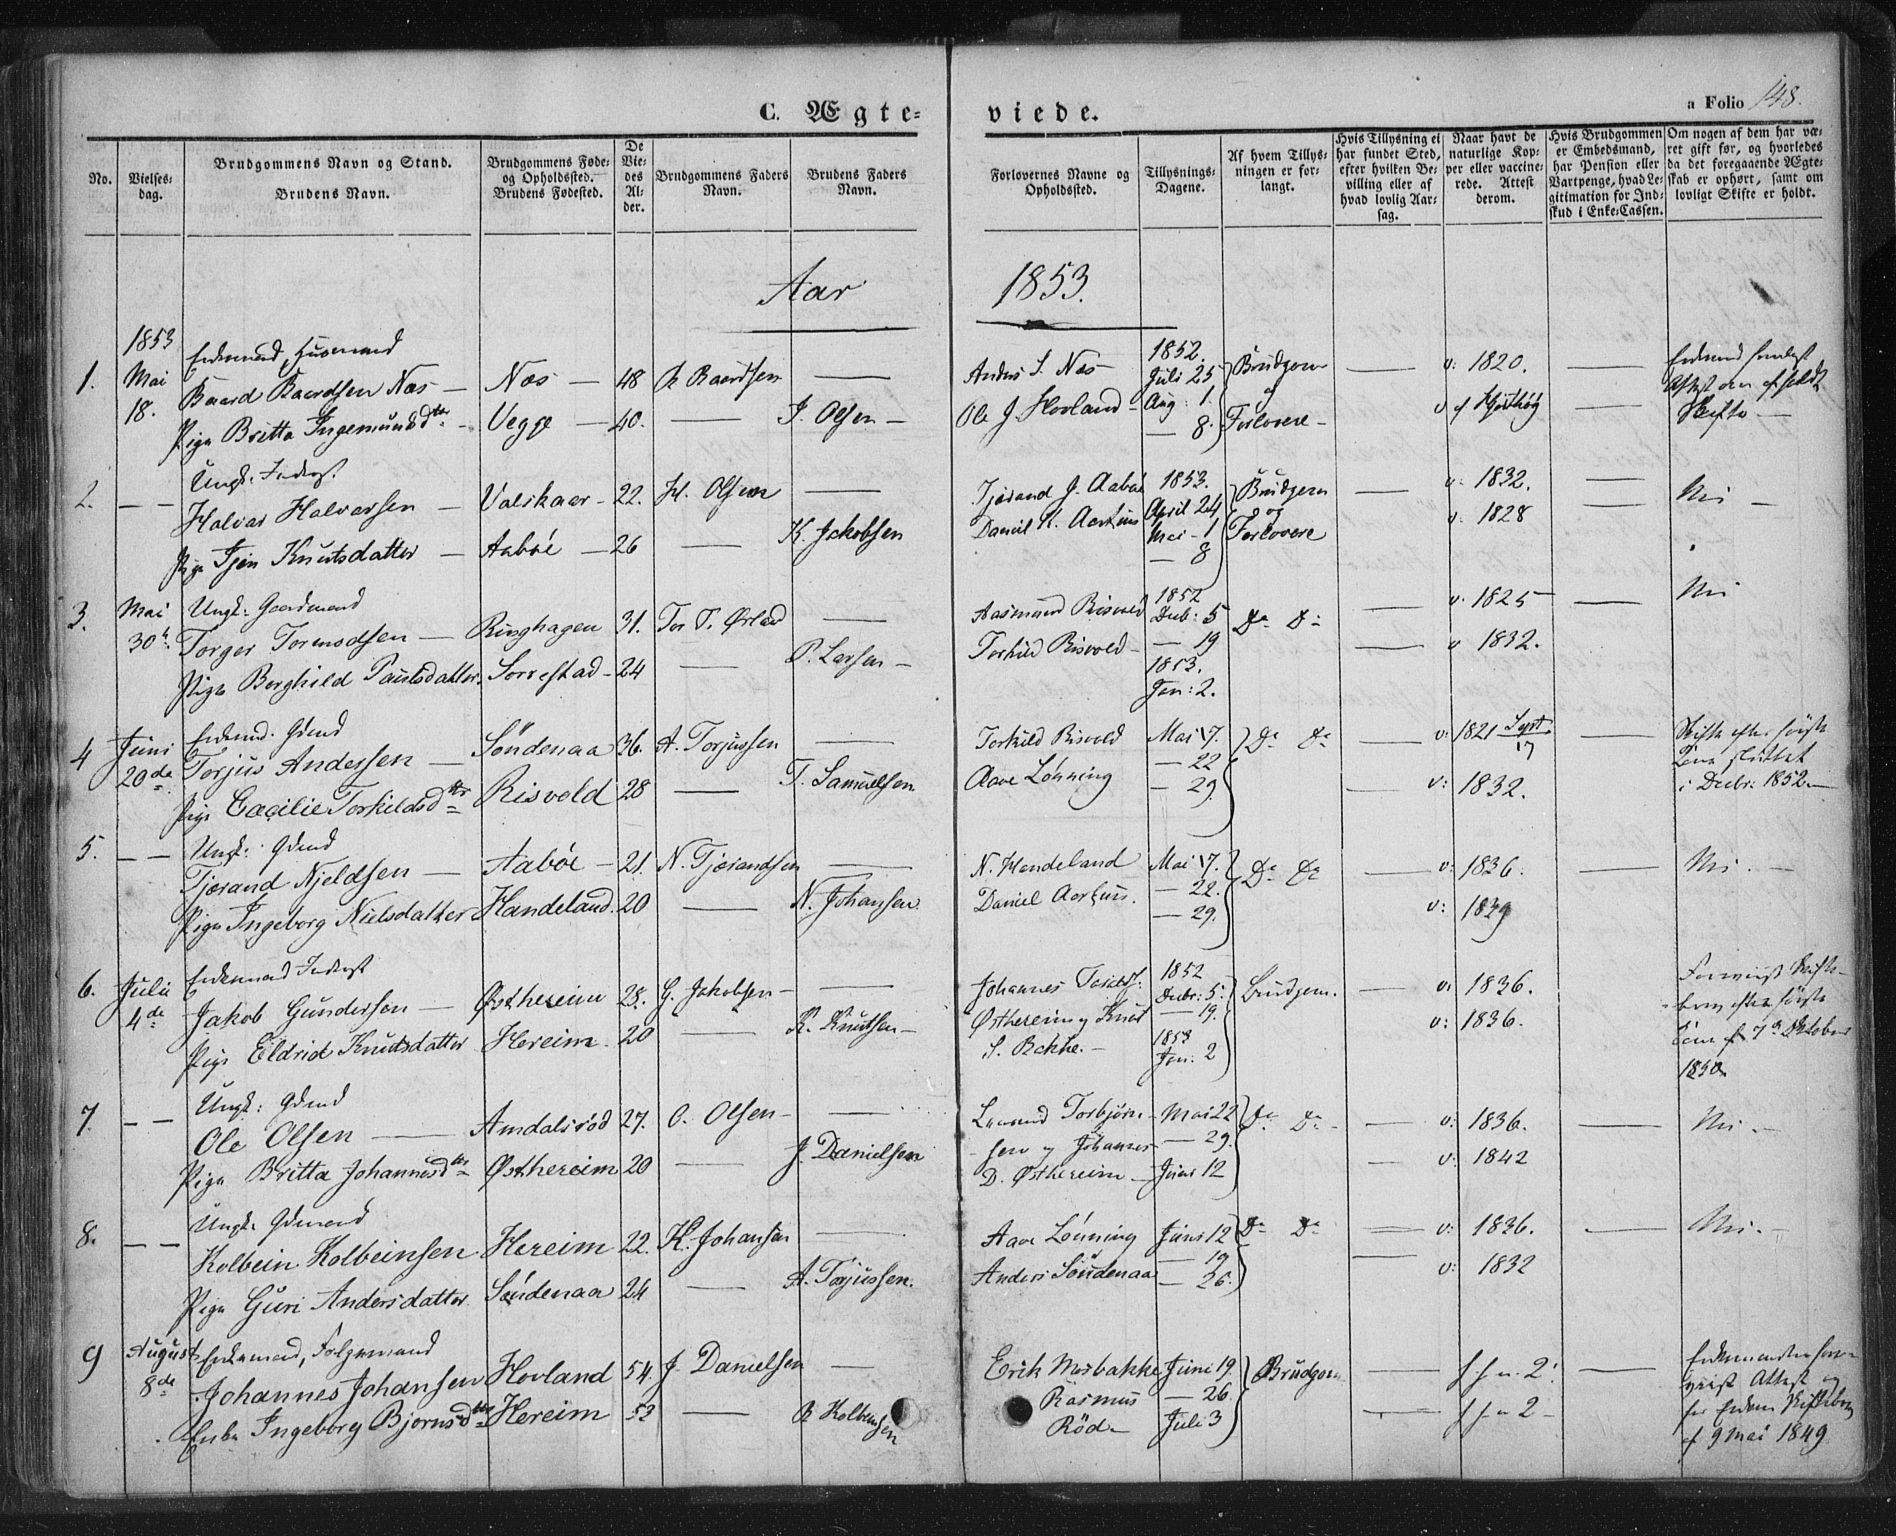 C. Ægte-
viede.
a Folio 148.
No.
Vielses-
dag.
Brudgommens Navn og Stand.
Brudens Navn.
Brudgommens Føde-
og Opholdssted.
Brudens Fødested.
De
Vie-
des
Al-
der.
Brudgommens Faders
Navn.
Brudens Faders
Navn.
Forlovernes Navne og
Opholdssted.
Tillysnings-
Dagene.
Af hvem Tillys-
ningen er for-
langt.
Hvis Tillysning ei
har fundet Sted,
efter hvilken Be-
villing eller af
hvad lovlig Aar-
sag.
Naar havt de
naturlige Kop-
per eller vaccine-
rede. Attest
derom.
Hvis Brudgommen
er Embedsmand,
har Pension eller
Vartpenge, hvad Le-
gitimation for Ind-
skud i Enke-Cassen.
Om nogen af dem har væ-
ret gift før, og hvorledes
da det foregaaende Ægte-
skab er ophørt, samt om
lovligt Skifte er holdt.
Aar 1853.
1853
1. Mai 18.
Enkemand, Huusmand
Baard Baardsen Næs — Næs — 48 B. Baardsen —
Pige Britta Ingemundsdtr — Vegge — 40. — I. Olsen —
Anders S. Næs
Ole J. Hovland
1852.
Juli 25
Aug: 1.
— 8.
Brudgom
og
Forlovere —
v: 1820.
Skifte —
2. — —
Ungk. Inderst
Halvar Halvarsen — Valskaar — 22. H. Olsen —
Pige Tjen Knutsdatter — Aabøe — 26 — K. Jakobsen
Tjærand J. Aabøe
Daniel K. Aarhuus
1853.
April 24
Mai — 1
— 8
Brudgom
og
Forlovere
v: 1832.
v: 1828
Nei —
3. Mai 30te
Ungk: Gaardmand
Torger Tormodsen — Ringhagen 31. Tor T. Ørland —
Pige Borghild Paulsdatter Sørrestad — 24 — P. Larsen —
Aasmund Risvold
Torkild Risvold —
1852
Decb: 5
— 19
1853.
Jan: 2.
Do Do
v. 1825
v 1832.
Nei
4 Juni 20de
Enkemd. Gmd
Torjus Andersen — Söndenaa 36. A. Torjussen —
Pige Cæcilie Torkildsdtr Risvold 28 — T. Samuelsen
Torkild Risvold
Aave Löhning
Mai 17.
— 22
— 29.
Do Do
v: 1821 Sept 17
v: 1832.
Skifte efter første
Kone sluttet
i Decbr: 1852 —
5. — —
Ungk: Gdmd
Tjærand Njeldsen — Aabøe — 21. N. Tjærandsen —
Pige Ingeborg Nielsdatter Handeland. 20 — N. Johansen.
N. Handeland
Daniel Aarhuus.
Mai 17.
— 22.
— 29.
Do Do
v: 1836.
v: 1839
Nei. —
6. Julii 4de
Enkemand Inderst
Jakob Gundersen — Østhereim 28. G. Jakobsen —
Pige Eldrid Knutsdatter Hereim. 20 — K. Knutsen —
Johannes
Østhereim og Knut
S. Bakke. —
1852
Decbr: 5.
— 19.
1853
Jan: 2
Brudgom.
v. 1836.
v: 1836.
7. — —
Ungk: Gdmd
Ole Olsen — Amdalsrød 27. O. Olsen —
Pige Britta Johannesdtr Østhereim 20 — J. Danielsen
Torbjørn-
sen og Johannes
D. Østhereim —
Mai 22
— 29.
Juni 12
Do Do
v: 1836.
v: 1842
Nei. —
8. — —
Ungk. Gdmand
Kolbein Kolbeinsen Hereim 22. K. Johansen —
Pige Guri Andersdatter Söndenaa 24 — A. Torjussen.
Aave Lönning
Anders Söndenaa
Juni 12
— 19
— 26.
Do Do
v: 1836.
v: 1832
Nei.
9 August 8de
Enkemand, Folgemand
Johannes Johansen Hovland 54. J. Danielsen —
Enke Ingeborg Bjørnsdtr Hereim 52 — K Kolbensen
Erik Mosbakke
Rasmus
Röd —
Juni 19.
— 26.
Juli 3
Brudgom
Enkemanden
Attest og
for Enken Skiftebrev
af 9 Mai 1849